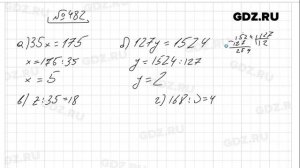 №482
GDZ.RU
а) 35x = 175
x = 175:35
x = 5
б) 127y = 1524
y = 1524:127
y = 2
1524 127
127 12
254
в) z:35=18
г) 168: =4
GDZ.RU